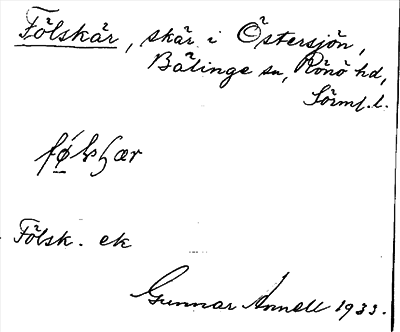 Fölskär, skär i Östersjön,
Bälinge sn, Rönö hd,
Sörml. l.
Fölsk. ek
Gunnar Annell 1933.